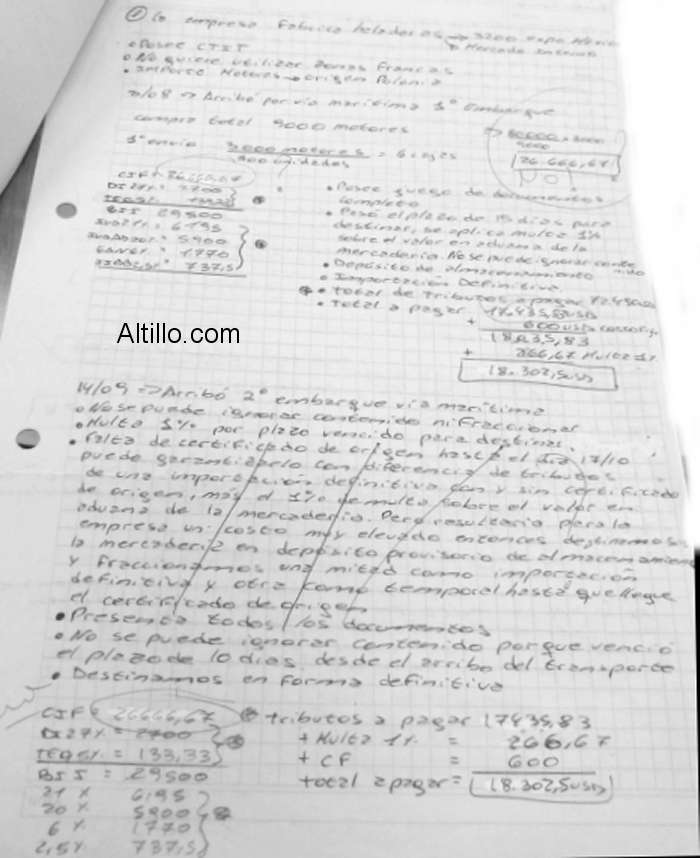 ① La empresa fabrica heladeras → 3200 expo
→ Mercado Interno
• Posee CTIT
• No quiere utilizar zonas francas
• Importo Motores → origen Polonia
/08 ⇒ Arribó por via maritima 1° embarque
compra total 9000 motores
1° envio 3000 motores = 6 cajas
unidades
80000 x 3000
9000
26.666,67
NO
CIF = 26666,67
DI 27% = 2700
= 133,33
BII 29500
IVA 21% = 6195
= 5900
6% = 1770
2,5% = 737,5
• Posee juego de documentos
completo
• Pasó el plazo de 15 dias para
destinar, se aplica multa 1%
sobre el valor en aduana de la
mercaderia. No se puede ignorar contenido
• Depósito de almacenamiento
• Importacion Definitiva
• Total de Tributos a pagar
• Total a pagar 17.435,83 USD
+ 600 USD
18.035,83
+ 266,67 Multa 1%
18.302,5 USD
Altillo.com
14/09 ⇒ Arribó 2° embarque via maritima
• No se puede ignorar contenido ni fraccionar
• Multa 1% por plazo vencido para destinar.
• Falta de certificado de origen hasta el dia 17/10
puede garantizarlo con diferencia de tributos
de una importación definitiva con y sin certificado
de origen, mas el 1% de multa sobre el valor en
aduana de la mercaderia. Pero resultaria para la
empresa un costo muy elevado entonces destinamos
la mercaderia en depósito provisorio de almacenamiento
y fraccionamos una mitad como importación
definitiva y otra como temporal hasta que llegue
el certificado de origen
• Presenta todos los documentos
• No se puede ignorar contenido porque venció
el plazo de 10 dias desde el arribo del transporte
• Destinamos en forma definitiva
CIF = 26666,67
DI 27% = 2700
= 133,33
BII = 29500
21% 6195
20% 5900
6% 1770
2,5% 737,5
tributos a pagar 17435,83
+ Multa 1% = 266,67
+ CF = 600
total a pagar = 18.302,5 USD